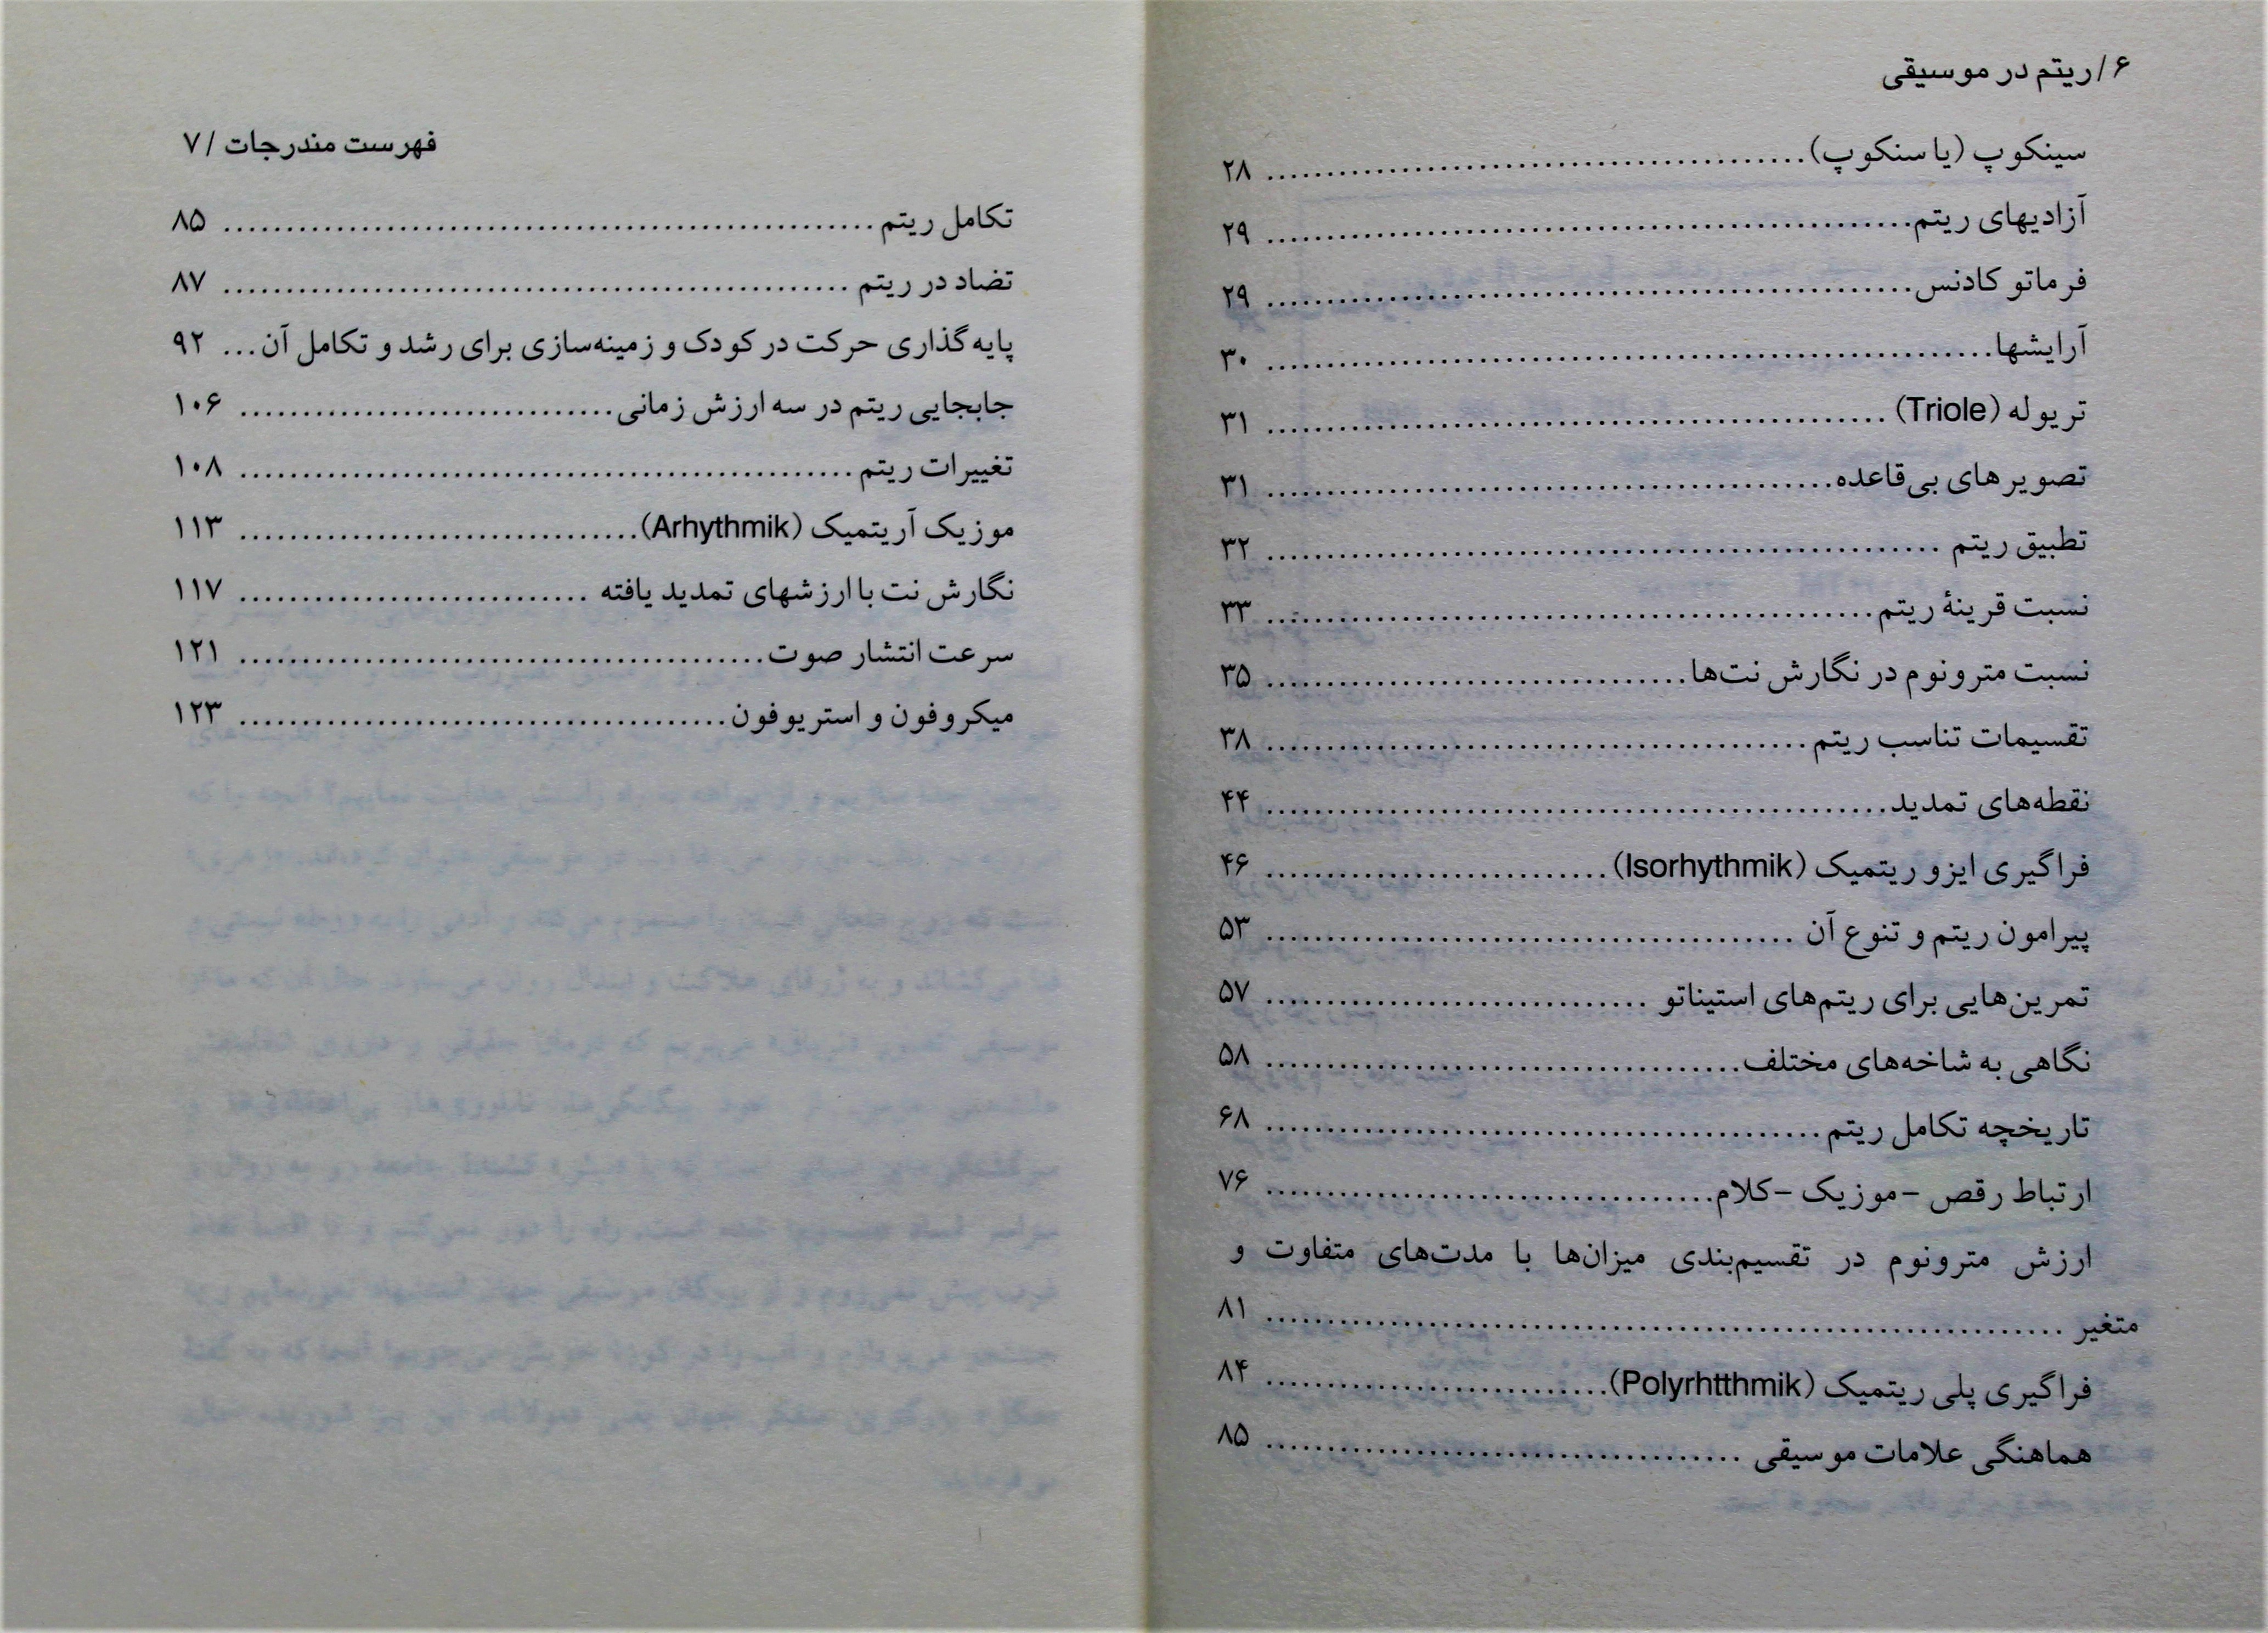 ۶/ریتم در موسیقی
سینکوپ (یا سنکوپ)........................................ ۲۸
آزادیهای ریتم........................................ ۲۹
فرماتو کادنس........................................ ۲۹
آرایشها........................................ ۳۰
تریوله (Triole) ........................................ ۳۱
تصویرهای بی‌قاعده........................................ ۳۱
تطبیق ریتم ........................................ ۳۲
نسبت قرینهٔ ریتم........................................ ۳۳
نسبت مترونوم در نگارش نت‌ها........................................ ۳۵
تقسیمات تناسب ریتم ........................................ ۳۸
نقطه‌های تمدید........................................ ۴۴
فراگیری ایزو ریتمیک (Isorhythmik)........................................ ۴۶
پیرامون ریتم و تنوع آن ........................................ ۵۳
تمرین‌هایی برای ریتم‌های استیناتو ........................................ ۵۷
نگاهی به شاخه‌های مختلف........................................ ۵۸
تاریخچه تکامل ریتم ........................................ ۶۸
ارتباط رقص -موزیک -کلام........................................ ۷۶
ارزش مترونوم در تقسیم‌بندی میزان‌ها با مدت‌های متفاوت و
متغیر ........................................ ۸۱
فراگیری پلی ریتمیک (Polyrhtthmik)........................................ ۸۴
هماهنگی علامات موسیقی ........................................ ۸۵
فهرست مندرجات /۷
تکامل ریتم ........................................ ۸۵
تضاد در ریتم ........................................ ۸۷
پایه‌گذاری حرکت در کودک و زمینه‌سازی برای رشد و تکامل آن... ۹۲
جابجایی ریتم در سه ارزش زمانی........................................ ۱۰۶
تغییرات ریتم ........................................ ۱۰۸
موزیک آریتمیک (Arhythmik)........................................ ۱۱۳
نگارش نت با ارزشهای تمدید یافته ........................................ ۱۱۷
سرعت انتشار صوت........................................ ۱۲۱
میکروفون و استریوفون........................................ ۱۲۳